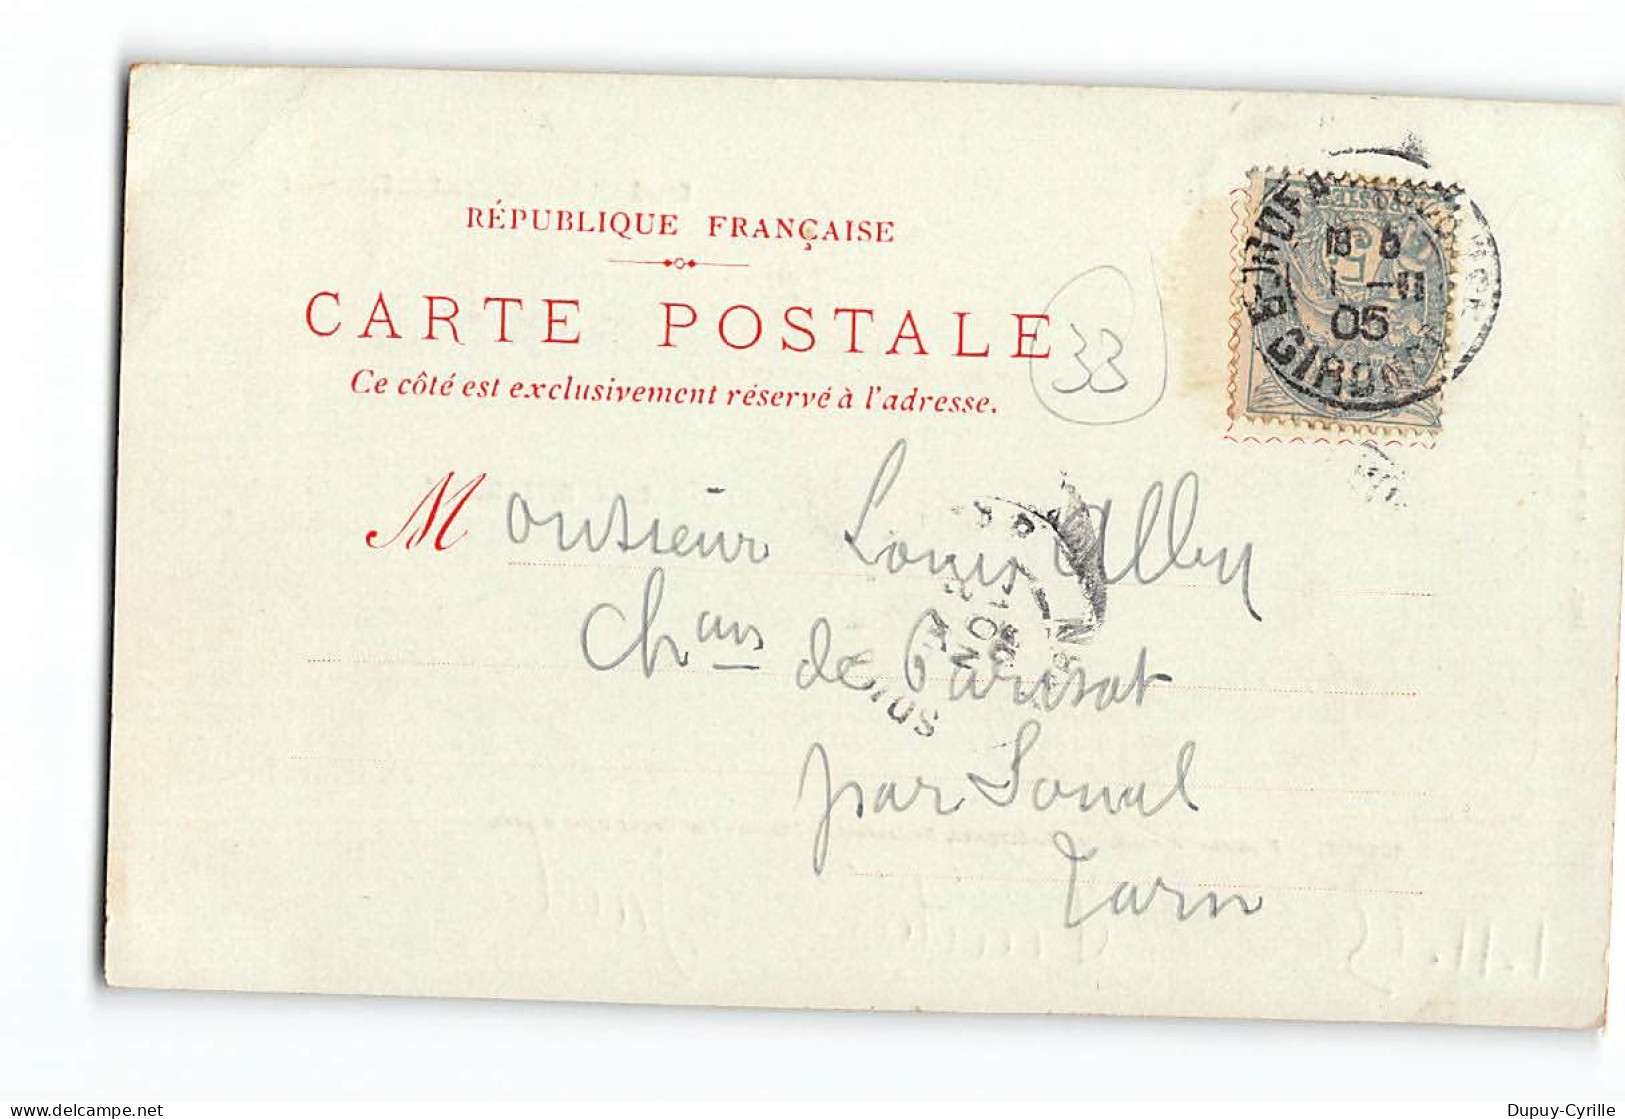 RÉPUBLIQUE FRANÇAISE
CARTE POSTALE
33
Ce côté est exclusivement réservé à l'adresse.
18 5
1 -11
05
GIRONDE
Monsieur Louis Alby
Ch^au de Parisot
par Soual
Tarn
Dupuy-Cyrille